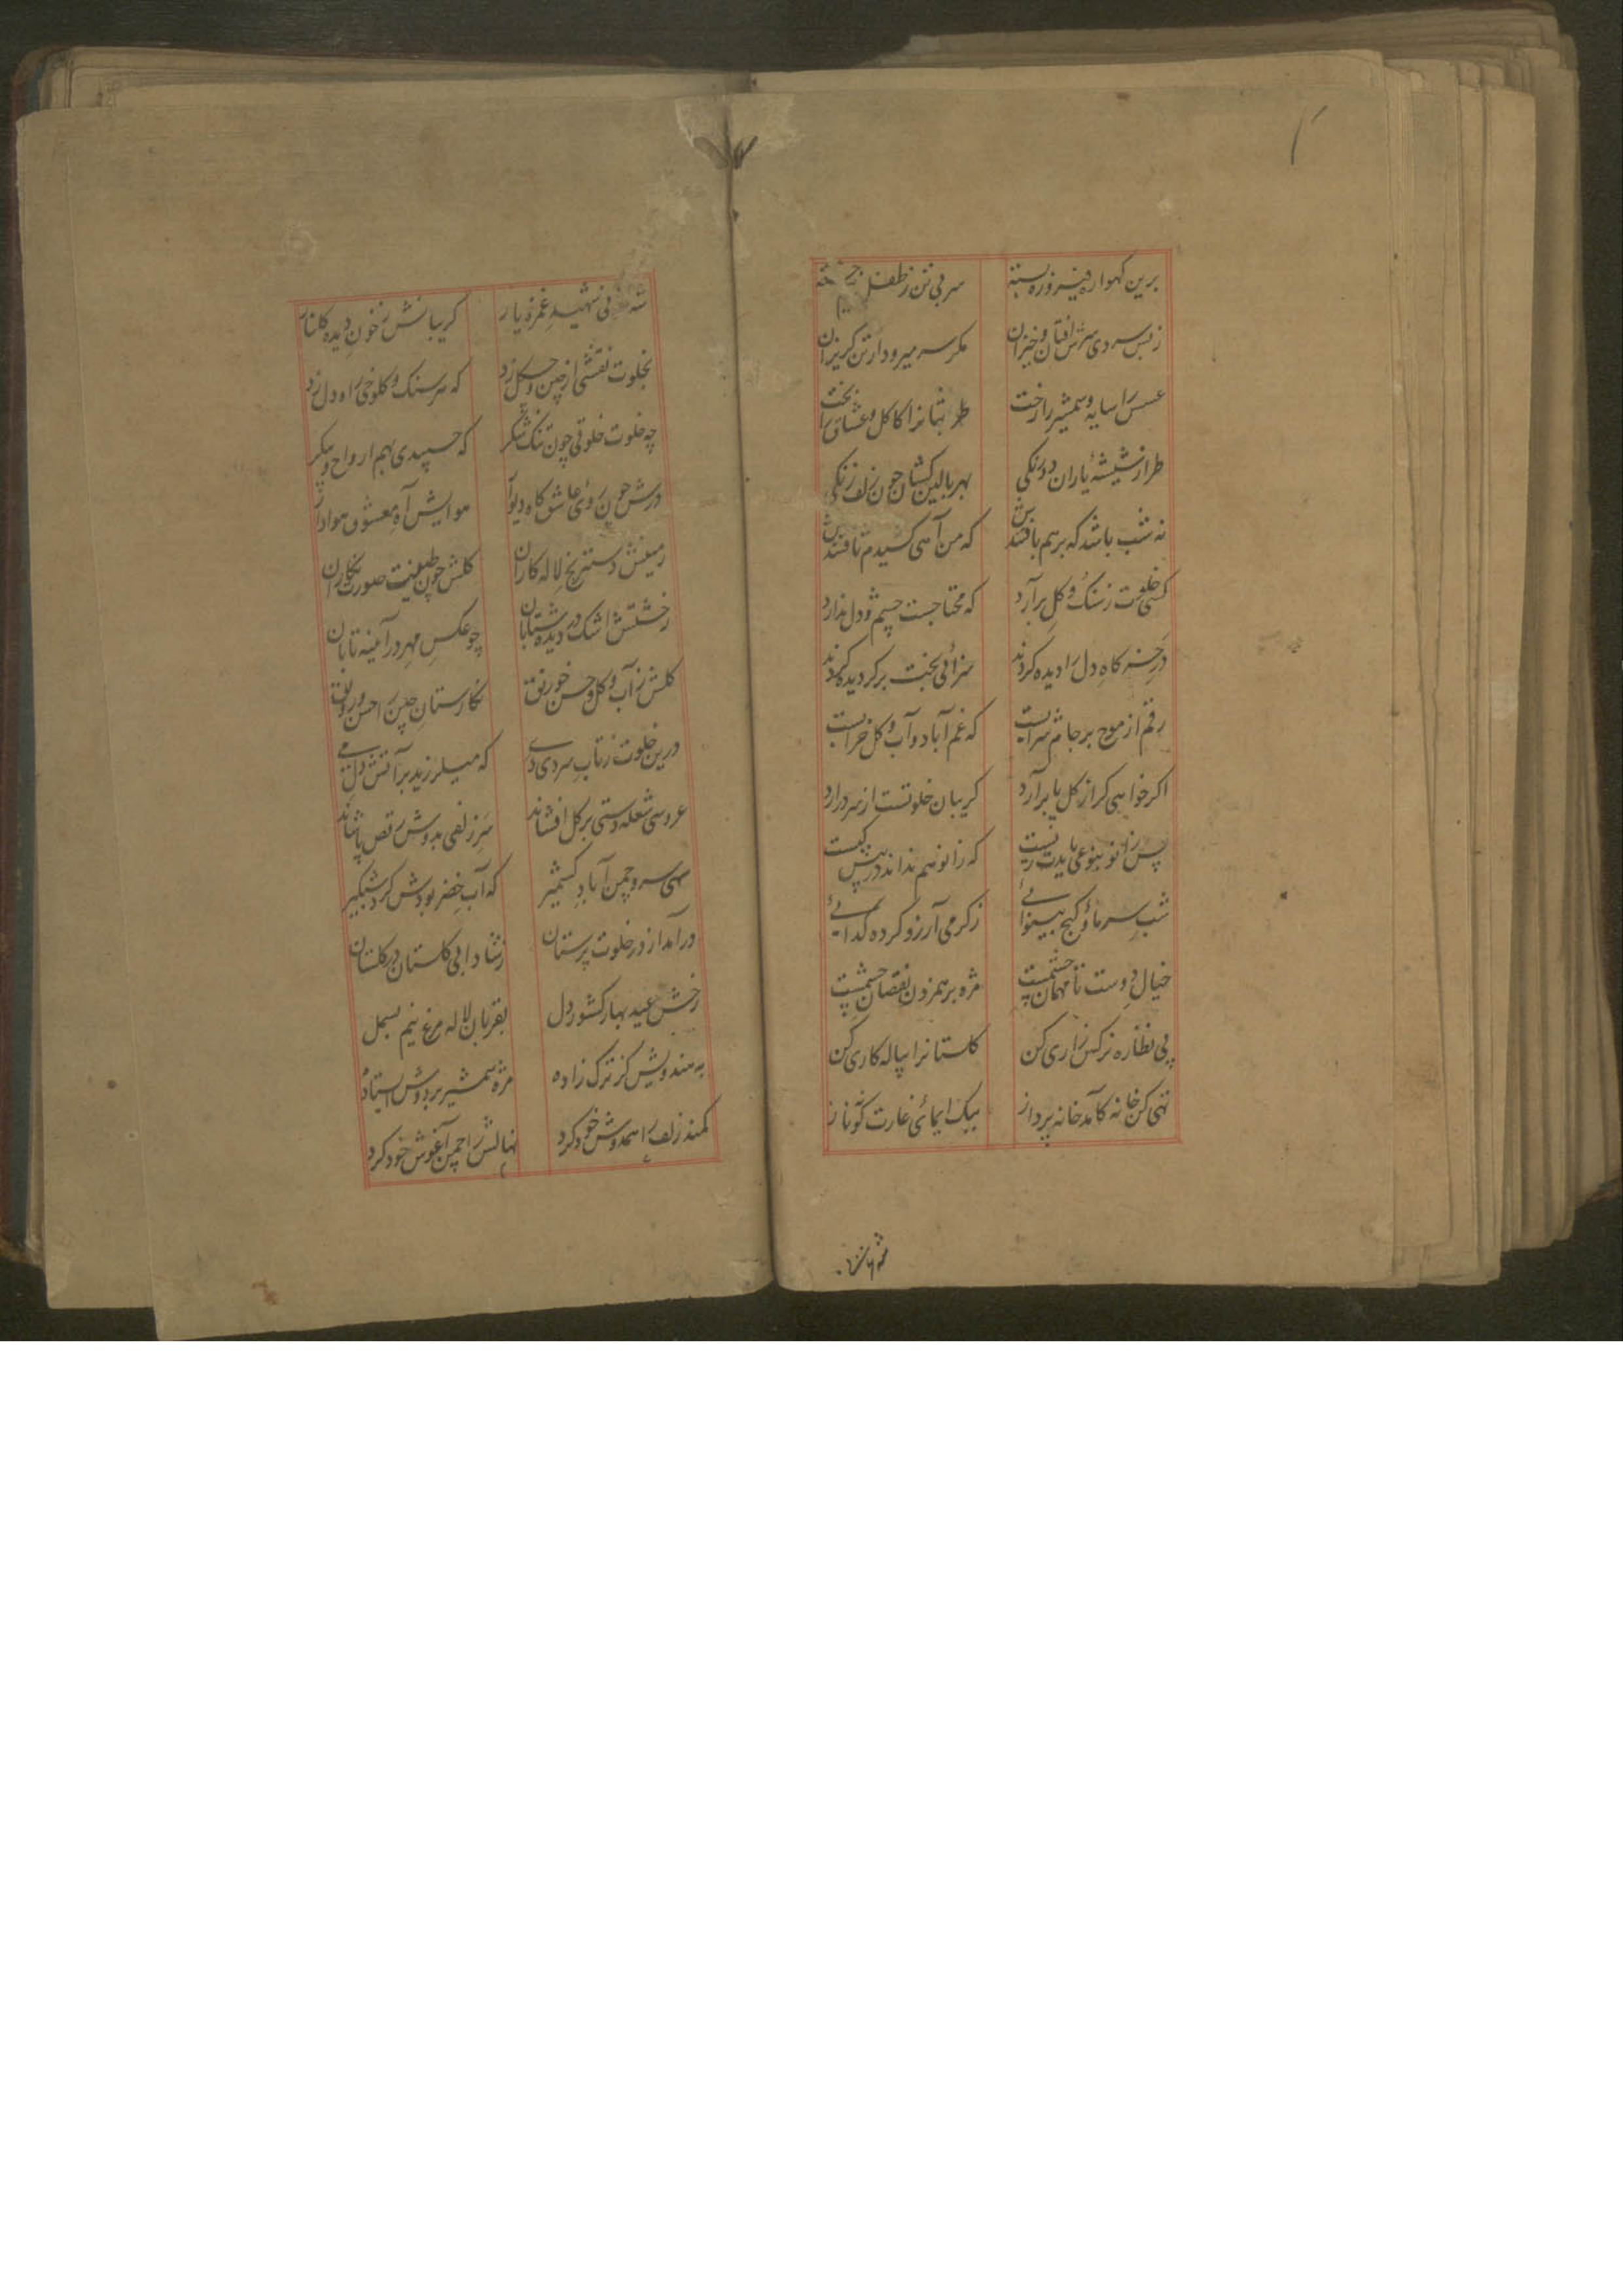 برین کهواره فیروزه بسته سر بی تن ز طفل
ز بس سردی سرش افتان و خیزان مکر سر میرود از تن کریزان
عسس را سایه و شمشیر را رخت را کاکل و عشاق را بخت
طراز شیشهٔ یاران دو رنکی بهر بالین کشان چون زلف زنکی
نه شب باشد که بر هم بافتندش که من آهی کشیدم تافتندش
کسی خلوت ز سنک و کل برآرد که محتاجست چشم و دل ندارد
در خر کاه دل را دیده کردند سزائی بخت بر کردیده کردند
رقم از موج بر جام شرابیست که غم آباد و آب و کل خرابیست
اکر خواهی کز کل پا برآرد کریبان خلوتست از سر درارد
پس زانو بنوعی بایدت زیست که زانو هم نداند در پیش کیست
شب سرما و کنج بینوائے ز کرمی آرزو کرده کدائے
خیال دوست تا مهمان چشمست مژه بر هم زدن نقصان چشمست
پی نظاره نرکس زاری کن کلستانرا پیاله کاری کن
تهی کن خانه کآمد خانه پرداز بیک ایمائی غارت کو نماز
شهید غمزه یار کریبانش ز خون دیده کلنار
بخلوت نقشی از چین و چکل زد که سر سنک و کلوخی راه دل زد
چه خلوت خلوتی چون تنک شکر که چسپیدی بهم ارواح و پیکر
درش چون روی عاشق کاه دیوار هوایش آه معشوق هوادار
زمینش دسترنج لاله کاران کلش چون طینت صورت نکاران
ز خشتش اشک در دیده شتابان چو عکس مهر در آیینه تابان
کلش ز آب و کل و حسن خورنق نکارستان چین را حسن و رونق
درین خلوت ز تاب سردی دے که میلرزید بر آتش دل مے
عروسی شعله دستی بر کل افشاند سر زلفی بدوش رقص پاشاند
سهی سرو چمن آباد کشمیر که آب خضر بودش کرد شبکیر
درآمد از در خلوت پرستان ز شادابی کلستان در کلستان
رخش عید بهار کشور دل بقربان لاله مرغ نیم بسمل
به هندویش کز ترک زاده مژه شمشیر بر دوش ایستاده
کمند زلف را همدوش خود کرد نهالش را چمن آغوش خود کرد